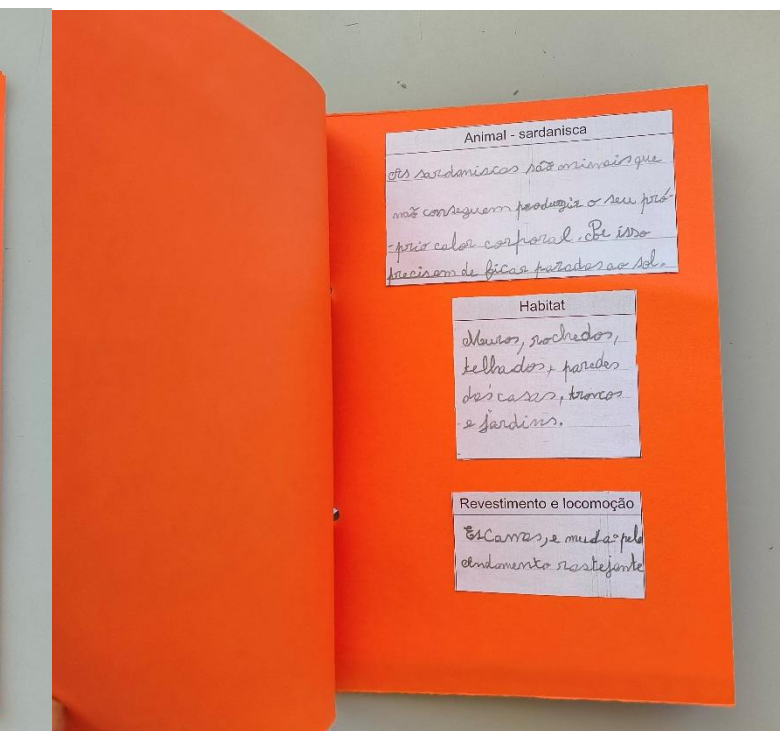 Animal - sardanisca
As sardaniscas são animais que
não conseguem produzir o seu pró-
-prio calor corporal. Por isso
precisam de ficar paradas ao sol.
Habitat
Muros, rochedos,
telhados, paredes
das casas, troncos
e jardins.
Revestimento e locomoção
Escamas, e muda pelo
andamento rastejante